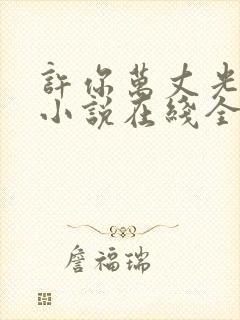 許你萬丈光
小說在綫全
詹福瑞